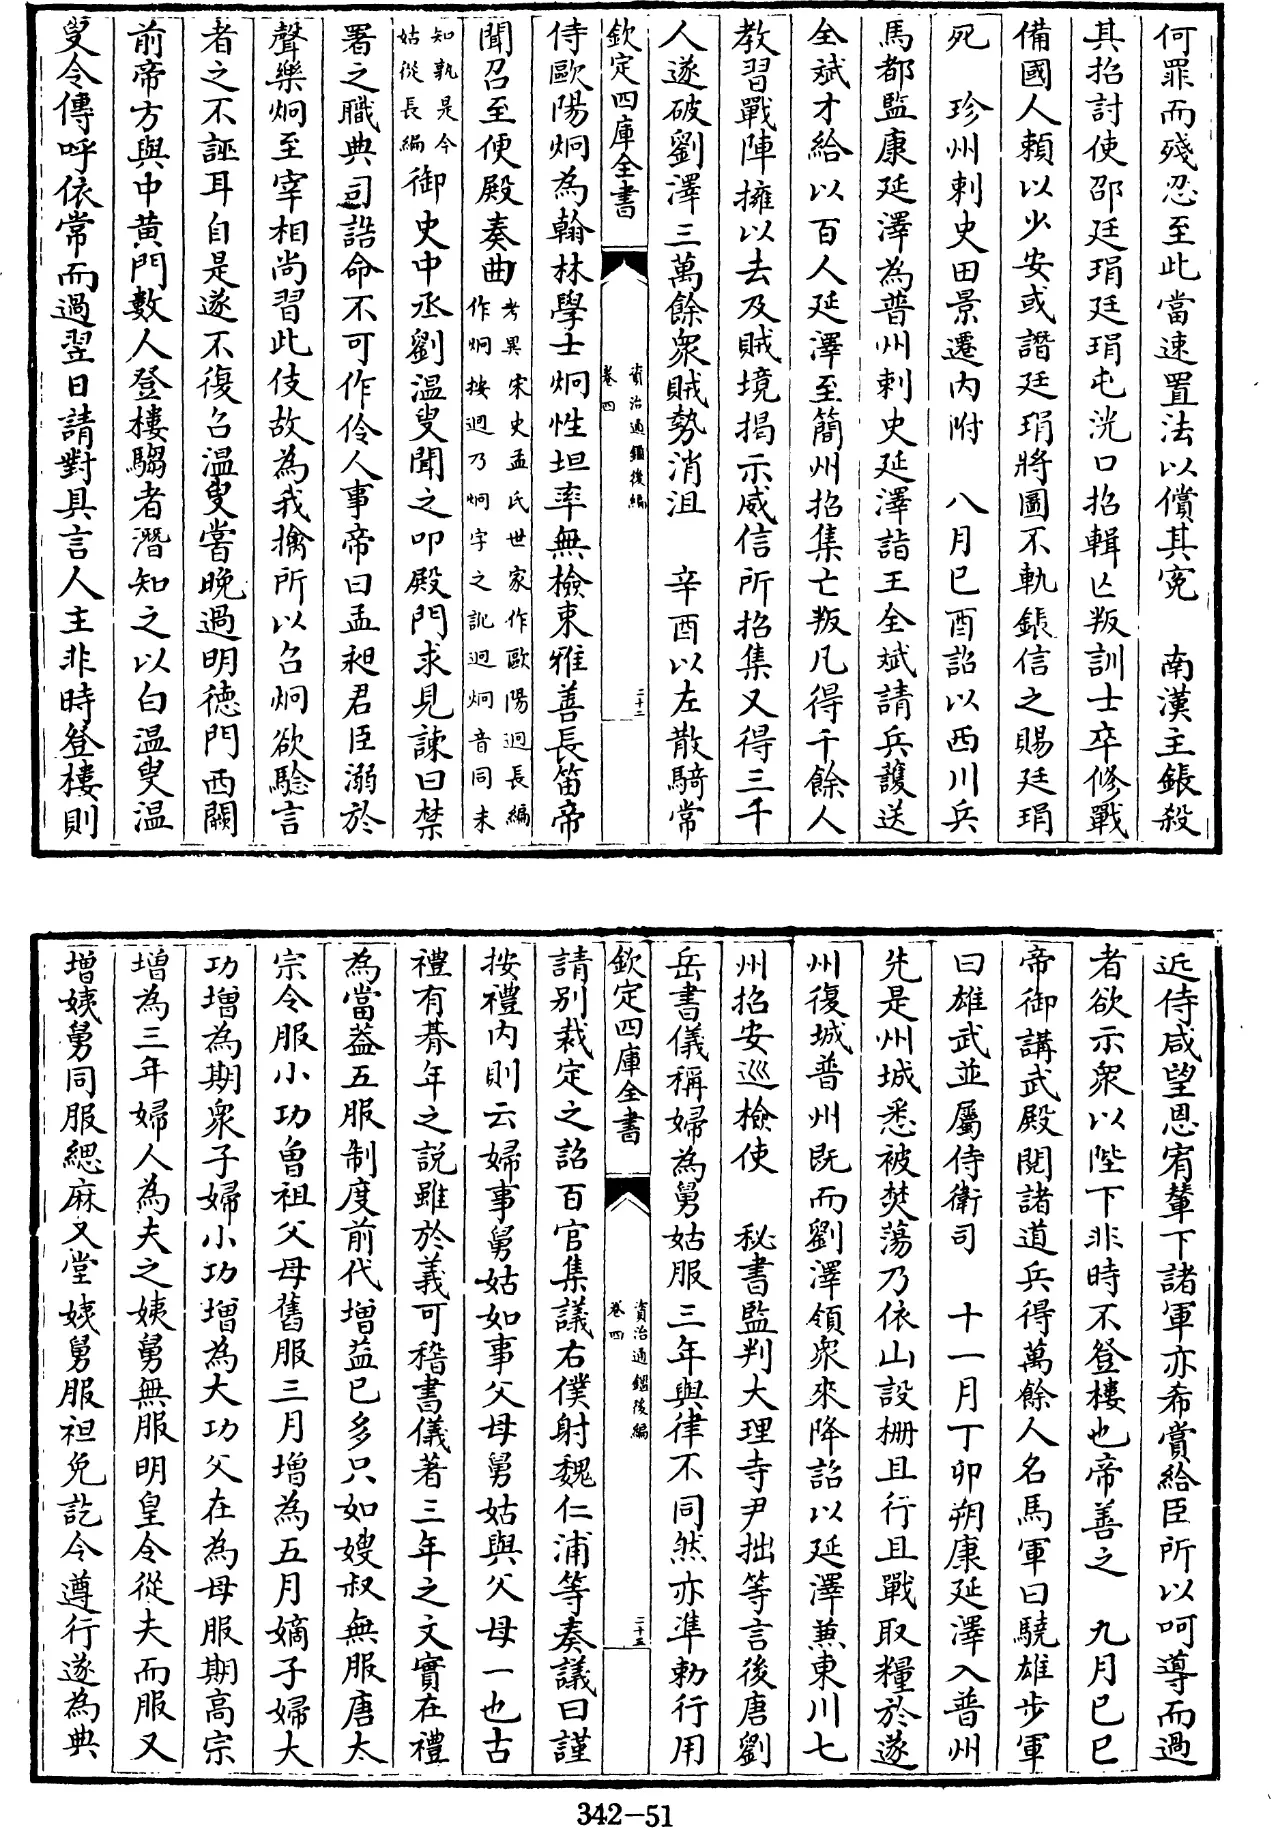 何罪而殘忍至此當速置法以償其寃　南漢主鋹殺
其招討使邵廷琄廷琄屯洸口招輯亡叛訓士卒修戰
備國人賴以少安或譖廷琄將圖不軌鋹信之賜廷琄
死　珍州刺史田景遷内附　八月己酉詔以西川兵
馬都監康延澤為普州刺史延澤詣王全斌請兵䕶送
全斌才給以百人延澤至簡州招集亡叛凡得千餘人
教習戰陣擁以去及賊境揭示威信所招集又得三千
人遂破劉澤三萬餘衆賊勢消沮　辛酉以左散騎常
欽定四庫全書
資治通鑑後編
卷四
二十二
侍歐陽炯為翰林學士炯性坦率無檢束雅善長笛帝
聞召至便殿奏曲
考異宋史孟氏世家作歐陽迥長編
作炯按迥乃炯字之訛迥炯音同未
知孰是今
姑從長編
御史中丞劉温叟聞之叩殿門求見諫曰禁
署之職典司誥命不可作伶人事帝曰孟昶君臣溺於
聲樂炯至宰相尚習此伎故為我擒所以召炯欲驗言
者之不誣耳自是遂不復召温叟嘗晩過明德門西闕
前帝方與中黄門數人登樓騶者潛知之以白温叟温
叟令傳呼依常而過翌日請對具言人主非時登樓則
近侍咸望恩宥輦下諸軍亦希賞給臣所以呵導而過
者欲示衆以陛下非時不登樓也帝善之　九月己巳
帝御講武殿閲諸道兵得萬餘人名馬軍曰驍雄步軍
曰雄武並屬侍衛司　十一月丁卯朔康延澤入普州
先是州城悉被焚蕩乃依山設栅且行且戰取糧於遂
州復城普州既而劉澤領衆來降詔以延澤兼東川七
州招安巡檢使　秘書監判大理寺尹拙等言後唐劉
岳書儀稱婦為舅姑服三年與律不同然亦準勅行用
欽定四庫全書
資治通鑑後編
卷四
二十三
請別裁定之詔百官集議右僕射魏仁浦等奏議曰謹
按禮内則云婦事舅姑如事父母舅姑與父母一也古
禮有朞年之説雖於義可稽書儀著三年之文實在禮
為當葢五服制度前代增益已多只如嫂叔無服唐太
宗令服小功曽祖父母舊服三月增為五月嫡子婦大
功增為期衆子婦小功增為大功父在為母服期高宗
增為三年婦人為夫之姨舅無服明皇令從夫而服又
增姨舅同服緦麻又堂姨舅服袒免訖今遵行遂為典
342-51